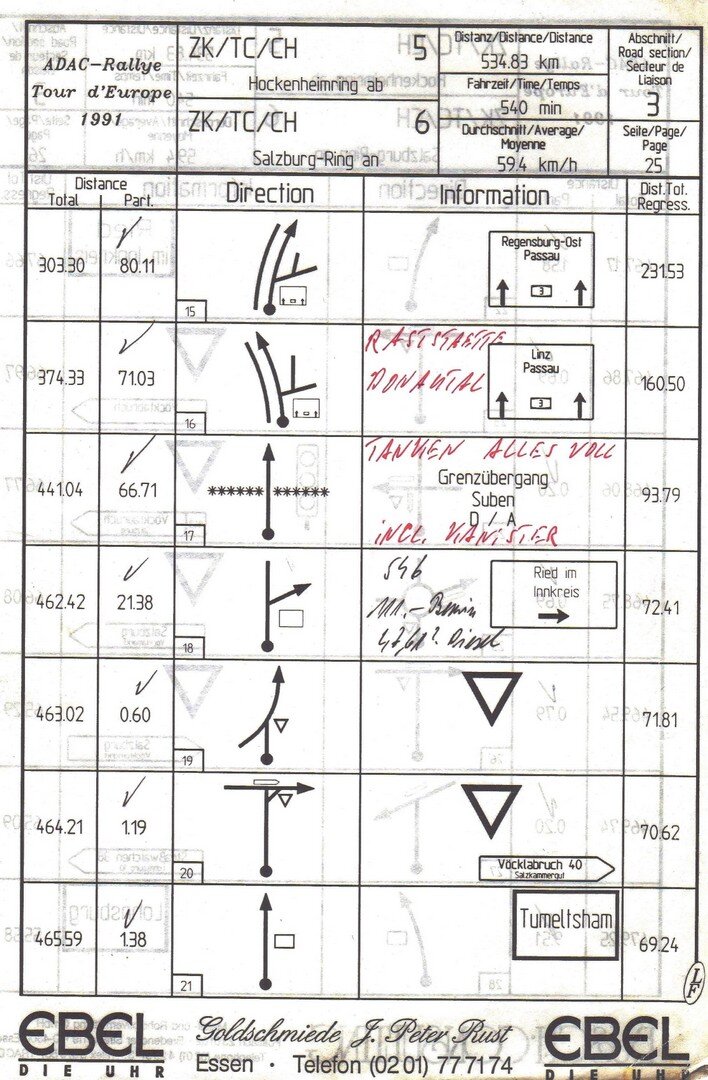 ADAC-Rallye
Tour d'Europe
1991
ZK/TC/CH 5
Hockenheimring ab
ZK/TC/CH 6
Salzburg-Ring an
Distanz/Distance/Distance
534.83 km
Fahrzeit/Time/Temps
540 min
Durchschnitt/Average/
Moyenne
59.4 km/h
Abschnitt/
Road section/
Secteur de
Liaison
3
Seite/Page/
Page
25
Distance
Total Part.
Direction
Information
Dist.Tot.
Regress.
303.30 80.11
15
Regensburg-Ost
Passau
3
231.53
374.33 71.03
16
RASTSTAETTE
DONAUTAL
Linz
Passau
3
160.50
441.04 66.71
17
TANKEN ALLES VOLL
Grenzübergang
Suben
D / A
INCL. KANISTER
93.79
462.42 21.38
18
546
111.- Benzin
Diesel
Ried im
Innkreis
72.41
463.02 0.60
19
71.81
464.21 1.19
20
Vöcklabruck 40
Salzkammergut
70.62
465.59 1.38
21
Tumeltsham
69.24
L
F
EBEL
DIE UHR
Goldschmiede J. Peter Rust
Essen · Telefon (0201) 777174
EBEL
DIE UHR